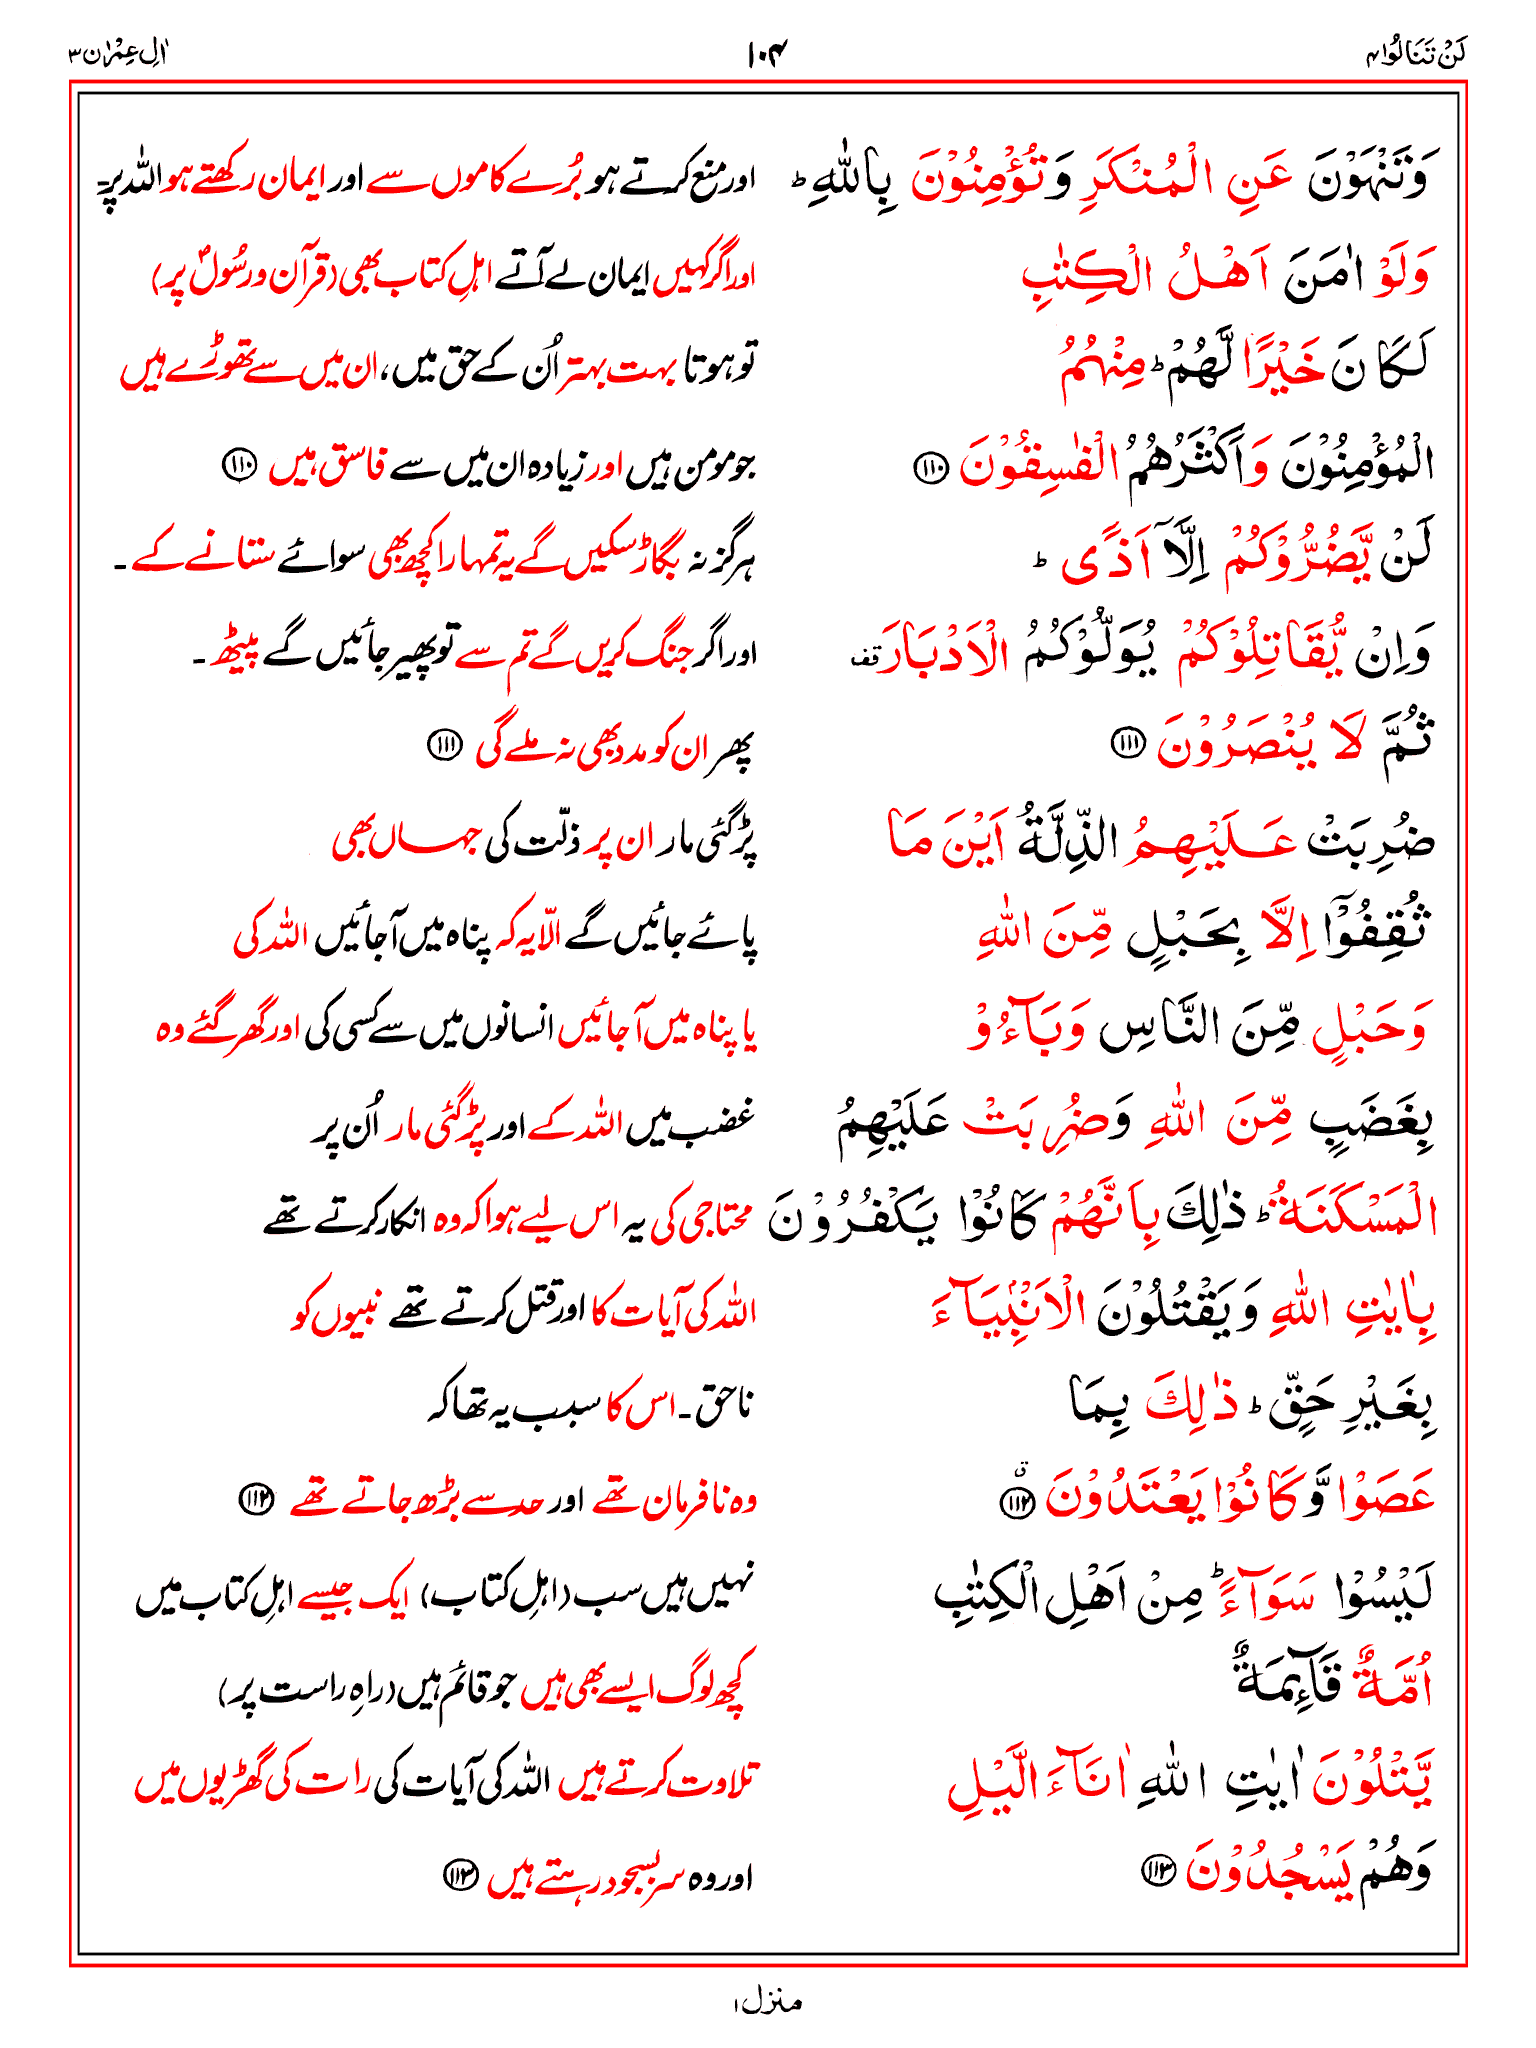 لَنْ تَنَالُوا ۴
۱۰۴
اٰلِ عِمْرٰن ۳
وَتَنْهَوْنَ عَنِ الْمُنْكَرِ وَتُؤْمِنُوْنَ بِاللّٰهِ ؕ اور منع کرتے ہو بُرے کاموں سے اور ایمان رکھتے ہو اللہ پر۔
وَلَوْ اٰمَنَ اَهْلُ الْكِتٰبِ اور اگر کہیں ایمان لے آتے اہلِ کتاب بھی (قرآن ورسُولؐ پر)
لَكَانَ خَيْرًا لَّهُمْ ؕ مِنْهُمُ تو ہوتا بہت بہتر اُن کے حق میں، ان میں سے تھوڑے ہیں
الْمُؤْمِنُوْنَ وَاَكْثَرُهُمُ الْفٰسِقُوْنَ ﴿۱۱۰﴾ جو مومن ہیں اور زیادہ ان میں سے فاسق ہیں ﴿۱۱۰﴾
لَنْ يَّضُرُّوْكُمْ اِلَّاۤ اَذًى ؕ ہرگز نہ بگاڑ سکیں گے یہ تمہارا کچھ بھی سوائے ستانے کے ۔
وَاِنْ يُّقَاتِلُوْكُمْ يُوَلُّوْكُمُ الْاَدْبَارَ قف اور اگر جنگ کریں گے تم سے تو پھیر جائیں گے پیٹھ ۔
ثُمَّ لَا يُنْصَرُوْنَ ﴿۱۱۱﴾ پھر ان کو مدد بھی نہ ملے گی ﴿۱۱۱﴾
ضُرِبَتْ عَلَيْهِمُ الذِّلَّةُ اَيْنَ مَا پڑ گئی مار ان پر ذلّت کی جہاں بھی
ثُقِفُوْۤا اِلَّا بِحَبْلٍ مِّنَ اللّٰهِ پائے جائیں گے الّا یہ کہ پناہ میں آجائیں اللہ کی
وَحَبْلٍ مِّنَ النَّاسِ وَبَآءُوْ یا پناہ میں آجائیں انسانوں میں سے کسی کی اور گھر گئے وہ
بِغَضَبٍ مِّنَ اللّٰهِ وَضُرِبَتْ عَلَيْهِمُ غضب میں اللہ کے اور پڑ گئی مار اُن پر
الْمَسْكَنَةُ ؕ ذٰلِكَ بِاَنَّهُمْ كَانُوْا يَكْفُرُوْنَ محتاجی کی یہ اس لیے ہوا کہ وہ انکار کرتے تھے
بِاٰيٰتِ اللّٰهِ وَيَقْتُلُوْنَ الْاَنْۢبِيَآءَ اللہ کی آیات کا اور قتل کرتے تھے نبیوں کو
بِغَيْرِ حَقٍّ ؕ ذٰلِكَ بِمَا ناحق ۔ اس کا سبب یہ تھا کہ
عَصَوْا وَّكَانُوْا يَعْتَدُوْنَ ﴿۱۱۲﴾ ق وہ نافرمان تھے اور حد سے بڑھ جاتے تھے ﴿۱۱۲﴾
لَيْسُوْا سَوَآءً ؕ مِنْ اَهْلِ الْكِتٰبِ نہیں ہیں سب (اہلِ کتاب) ایک جیسے اہلِ کتاب میں
اُمَّةٌ قَآئِمَةٌ کچھ لوگ ایسے بھی ہیں جو قائم ہیں (راہِ راست پر)
يَّتْلُوْنَ اٰيٰتِ اللّٰهِ اٰنَآءَ الَّيْلِ تلاوت کرتے ہیں اللہ کی آیات کی رات کی گھڑیوں میں
وَهُمْ يَسْجُدُوْنَ ﴿۱۱۳﴾ اور وہ سر بسجود رہتے ہیں ﴿۱۱۳﴾
منزل ۱